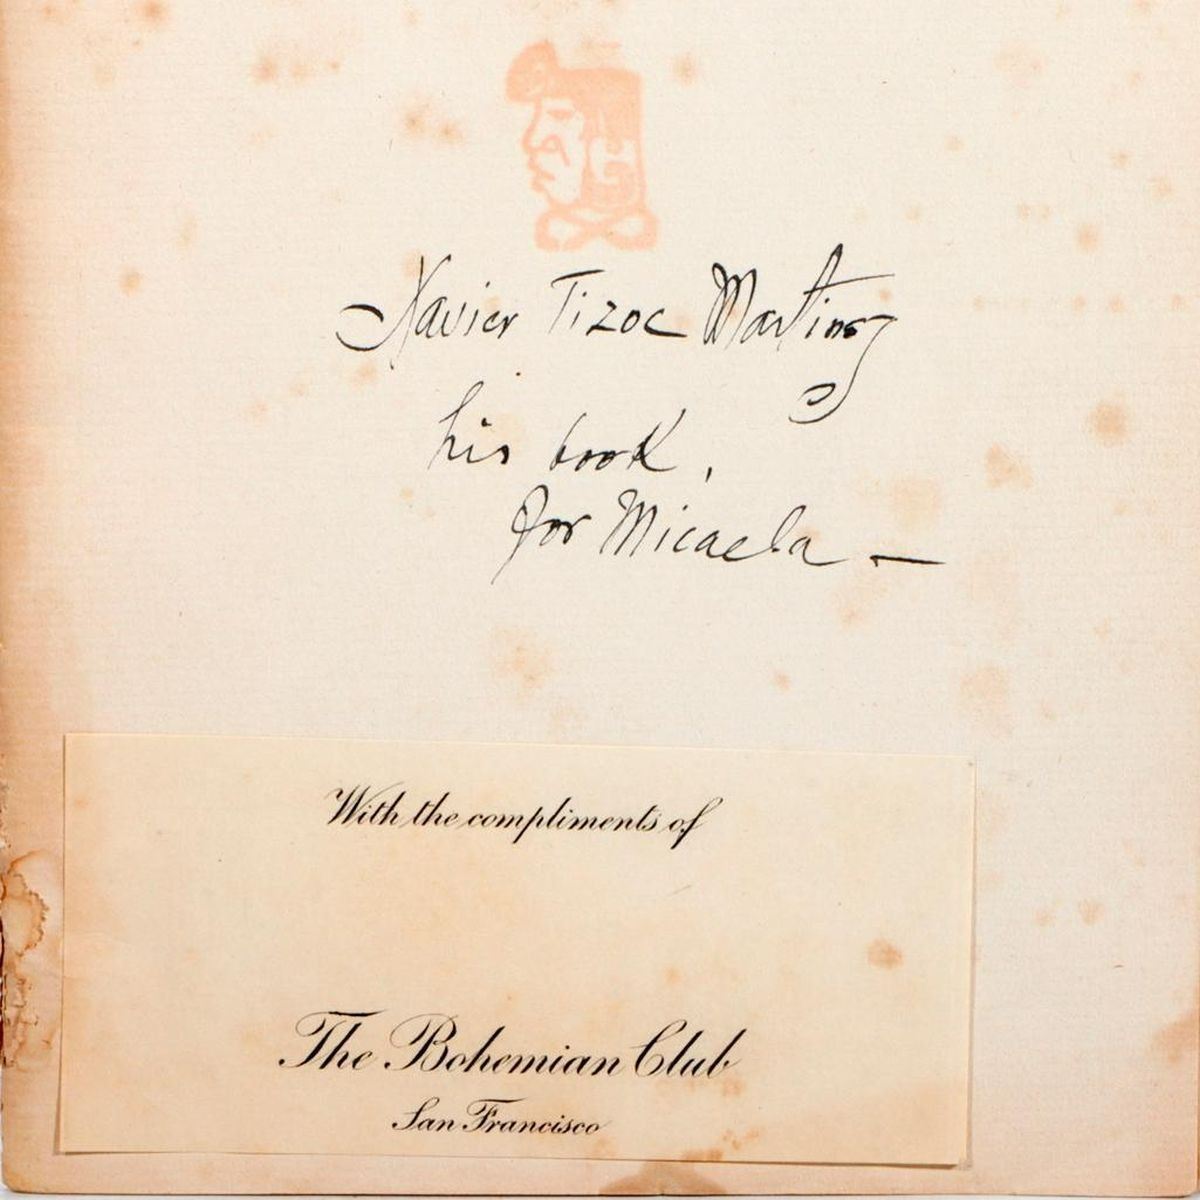 Xavier Tizoc Martinez
his book,
for Micaela —
With the compliments of
The Bohemian Club
San Francisco